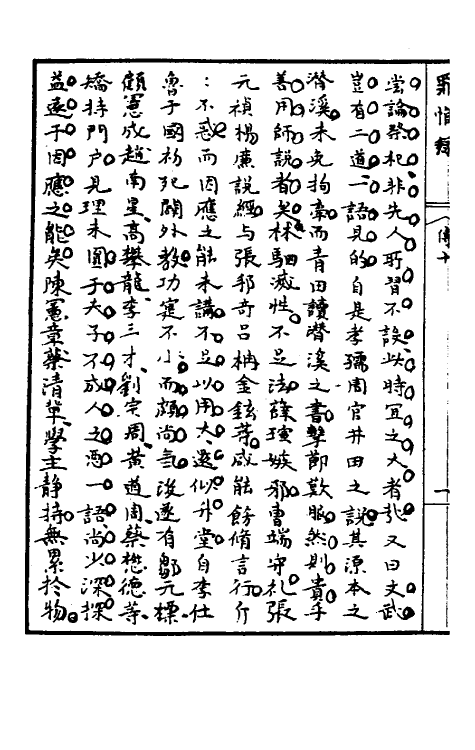 罪惟錄
傳十
一
嘗論祭祀非先人所習不設此時宜之大者扎又曰文武
豈有二道一語見的自是孝孺周官井田之說其源本之
潛溪未免拘牽而青田讀潛溪之書擊節歎服然則貴乎
善用師說者矣林駟滅性不足法薛瑄嫉邪曹端守礼張
元禎楊廉說經与張邦奇呂柟金鉉等咸能飭脩言行斤
：不惑而因應之能未講不足以用大選似升堂自李仕
魯于國初死闢外教功寔不小而頗尚氣後遂有鄒元標
顧憲成趙南星高攀龍李三才劉宗周黃道周蔡懋德等
矯持門戶見理未圓于夫子不成人之惡一語尚少深探
益遠于因應之能矣陳憲章蔡清輩學主靜持無累於物